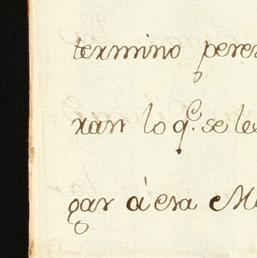 termino peren
ran lo qᵉ. se les
gar á esa Me